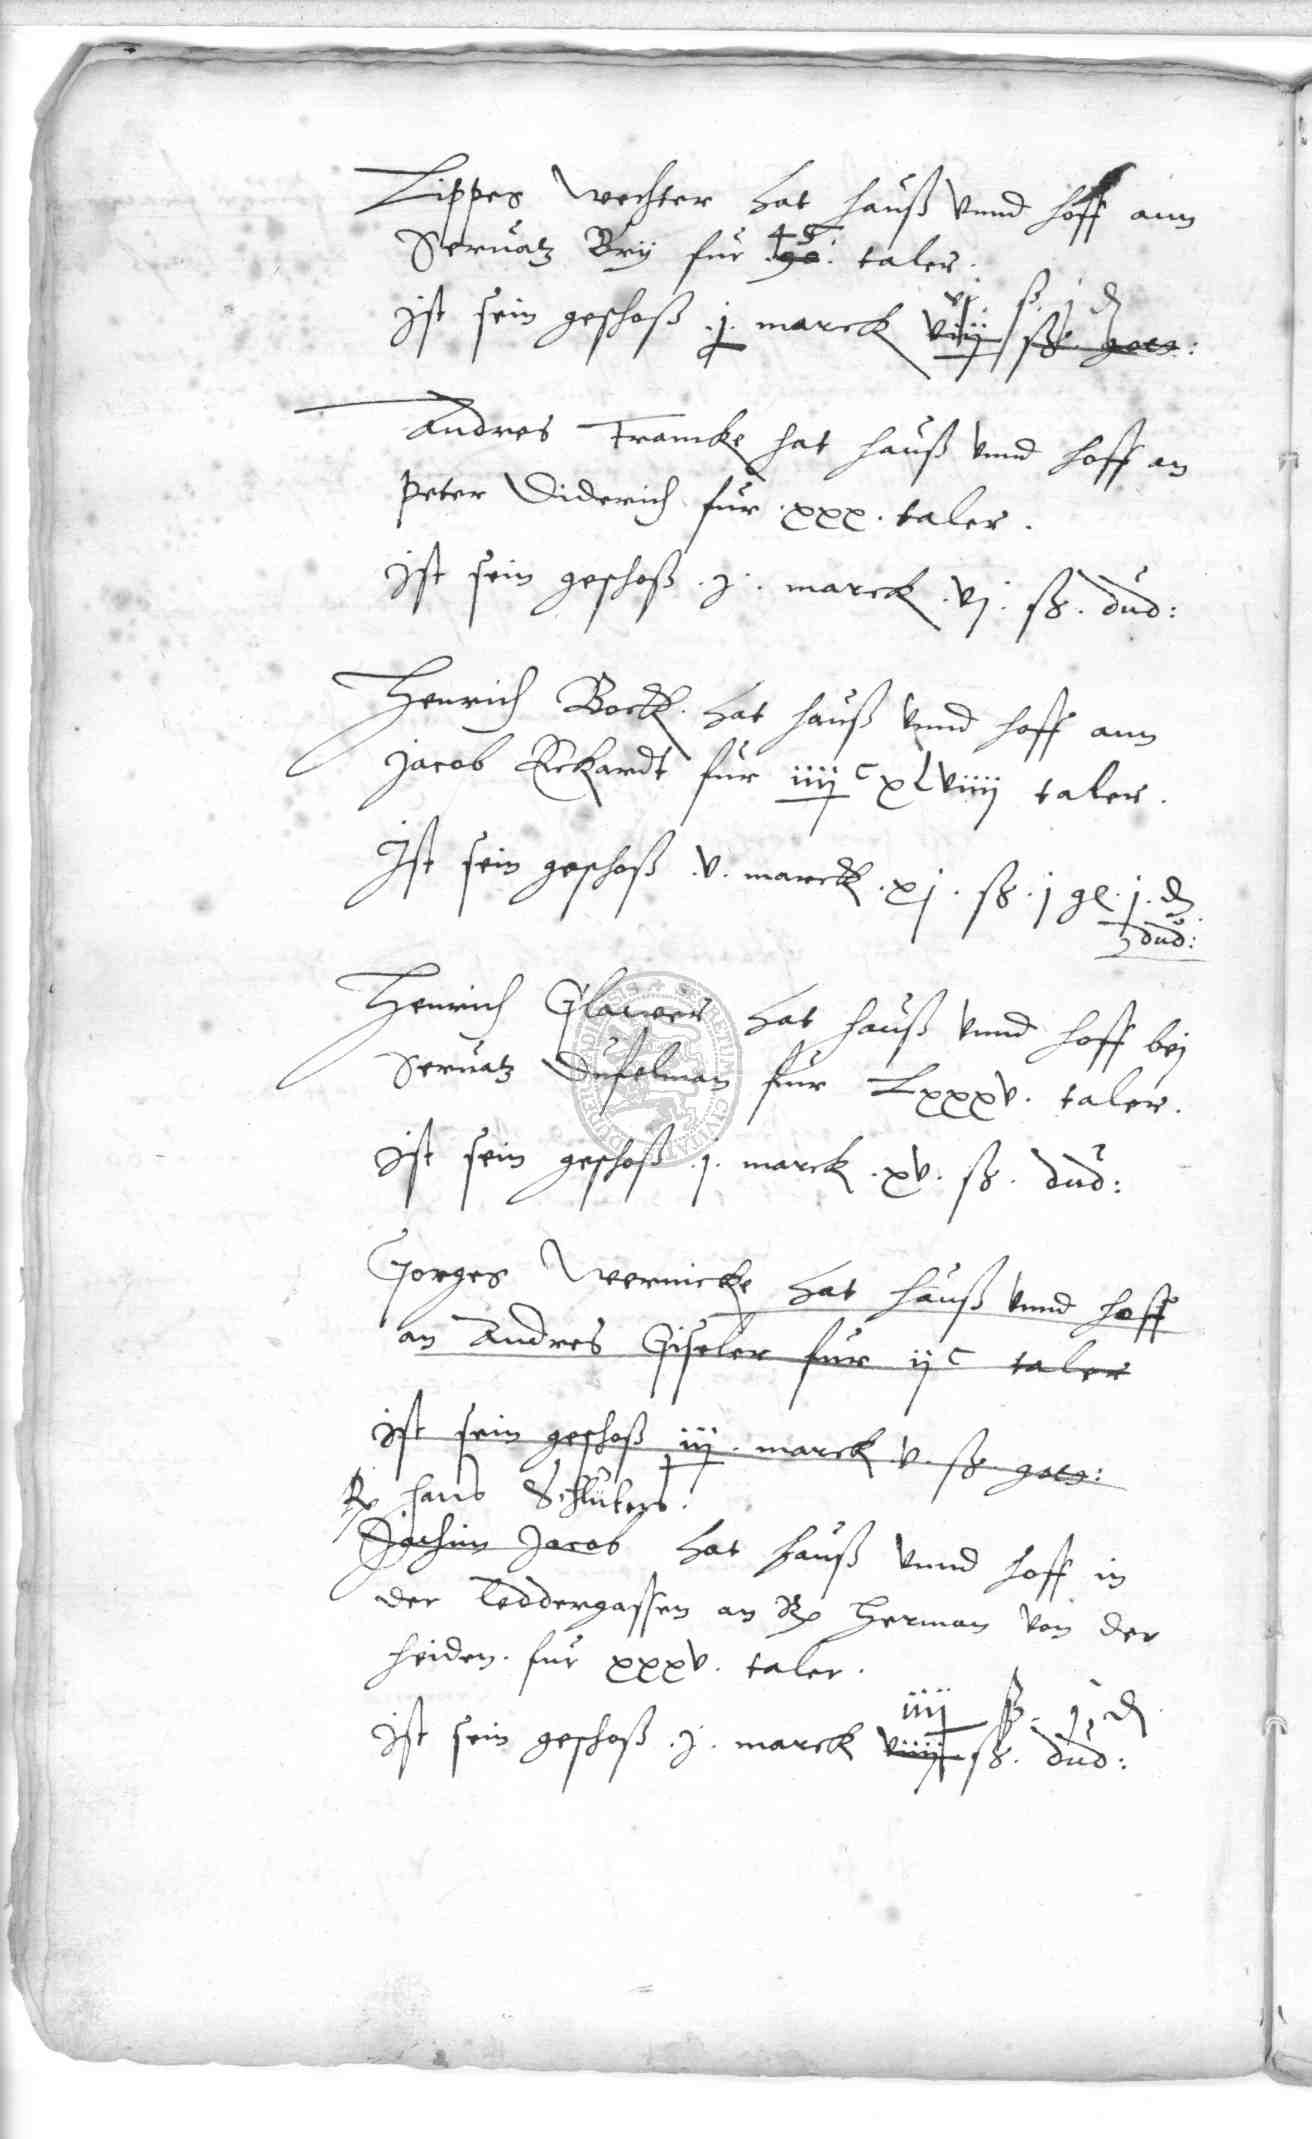 Lippes Wechter hat hauß vnnd hoff ann
Seruatz Brij fur 45 taler.
vj ß. j d
Ist sein geschoß .j. marck viij ß goes:
Andres Francke hat hauß vnnd hoff an
Peter Diderich fur .xxx. taler.
Ist sein geschoß .j. marck .vj. ß. dud:
Henrich Bock hat hauß vnnd hoff ann
Jacob Eckardt fur iiij c xLviiij taler.
Ist sein geschoß .v. marck .xj. ß. j gl. j. d
dud:
Henrich Glawer hat hauß vnnd hoff bej
Seruatz Dufelman fur Lxxxv. taler.
Ist sein geschoß .j. marck .xv. ß. dud:
Gorges Wernicke hat hauß vnnd hoff
an Andres Giseler fur ij c taler
Ist sein geschoß iij. marck .v. ß. goes:
hans Schluters.
Jochim Jacob hat hauß vnnd hoff in
der Leddergassen an Herman von der
heiden. fur xxxv. taler.
iiij ß. j d
Ist sein geschoß .j. marck viiij ß. dud: